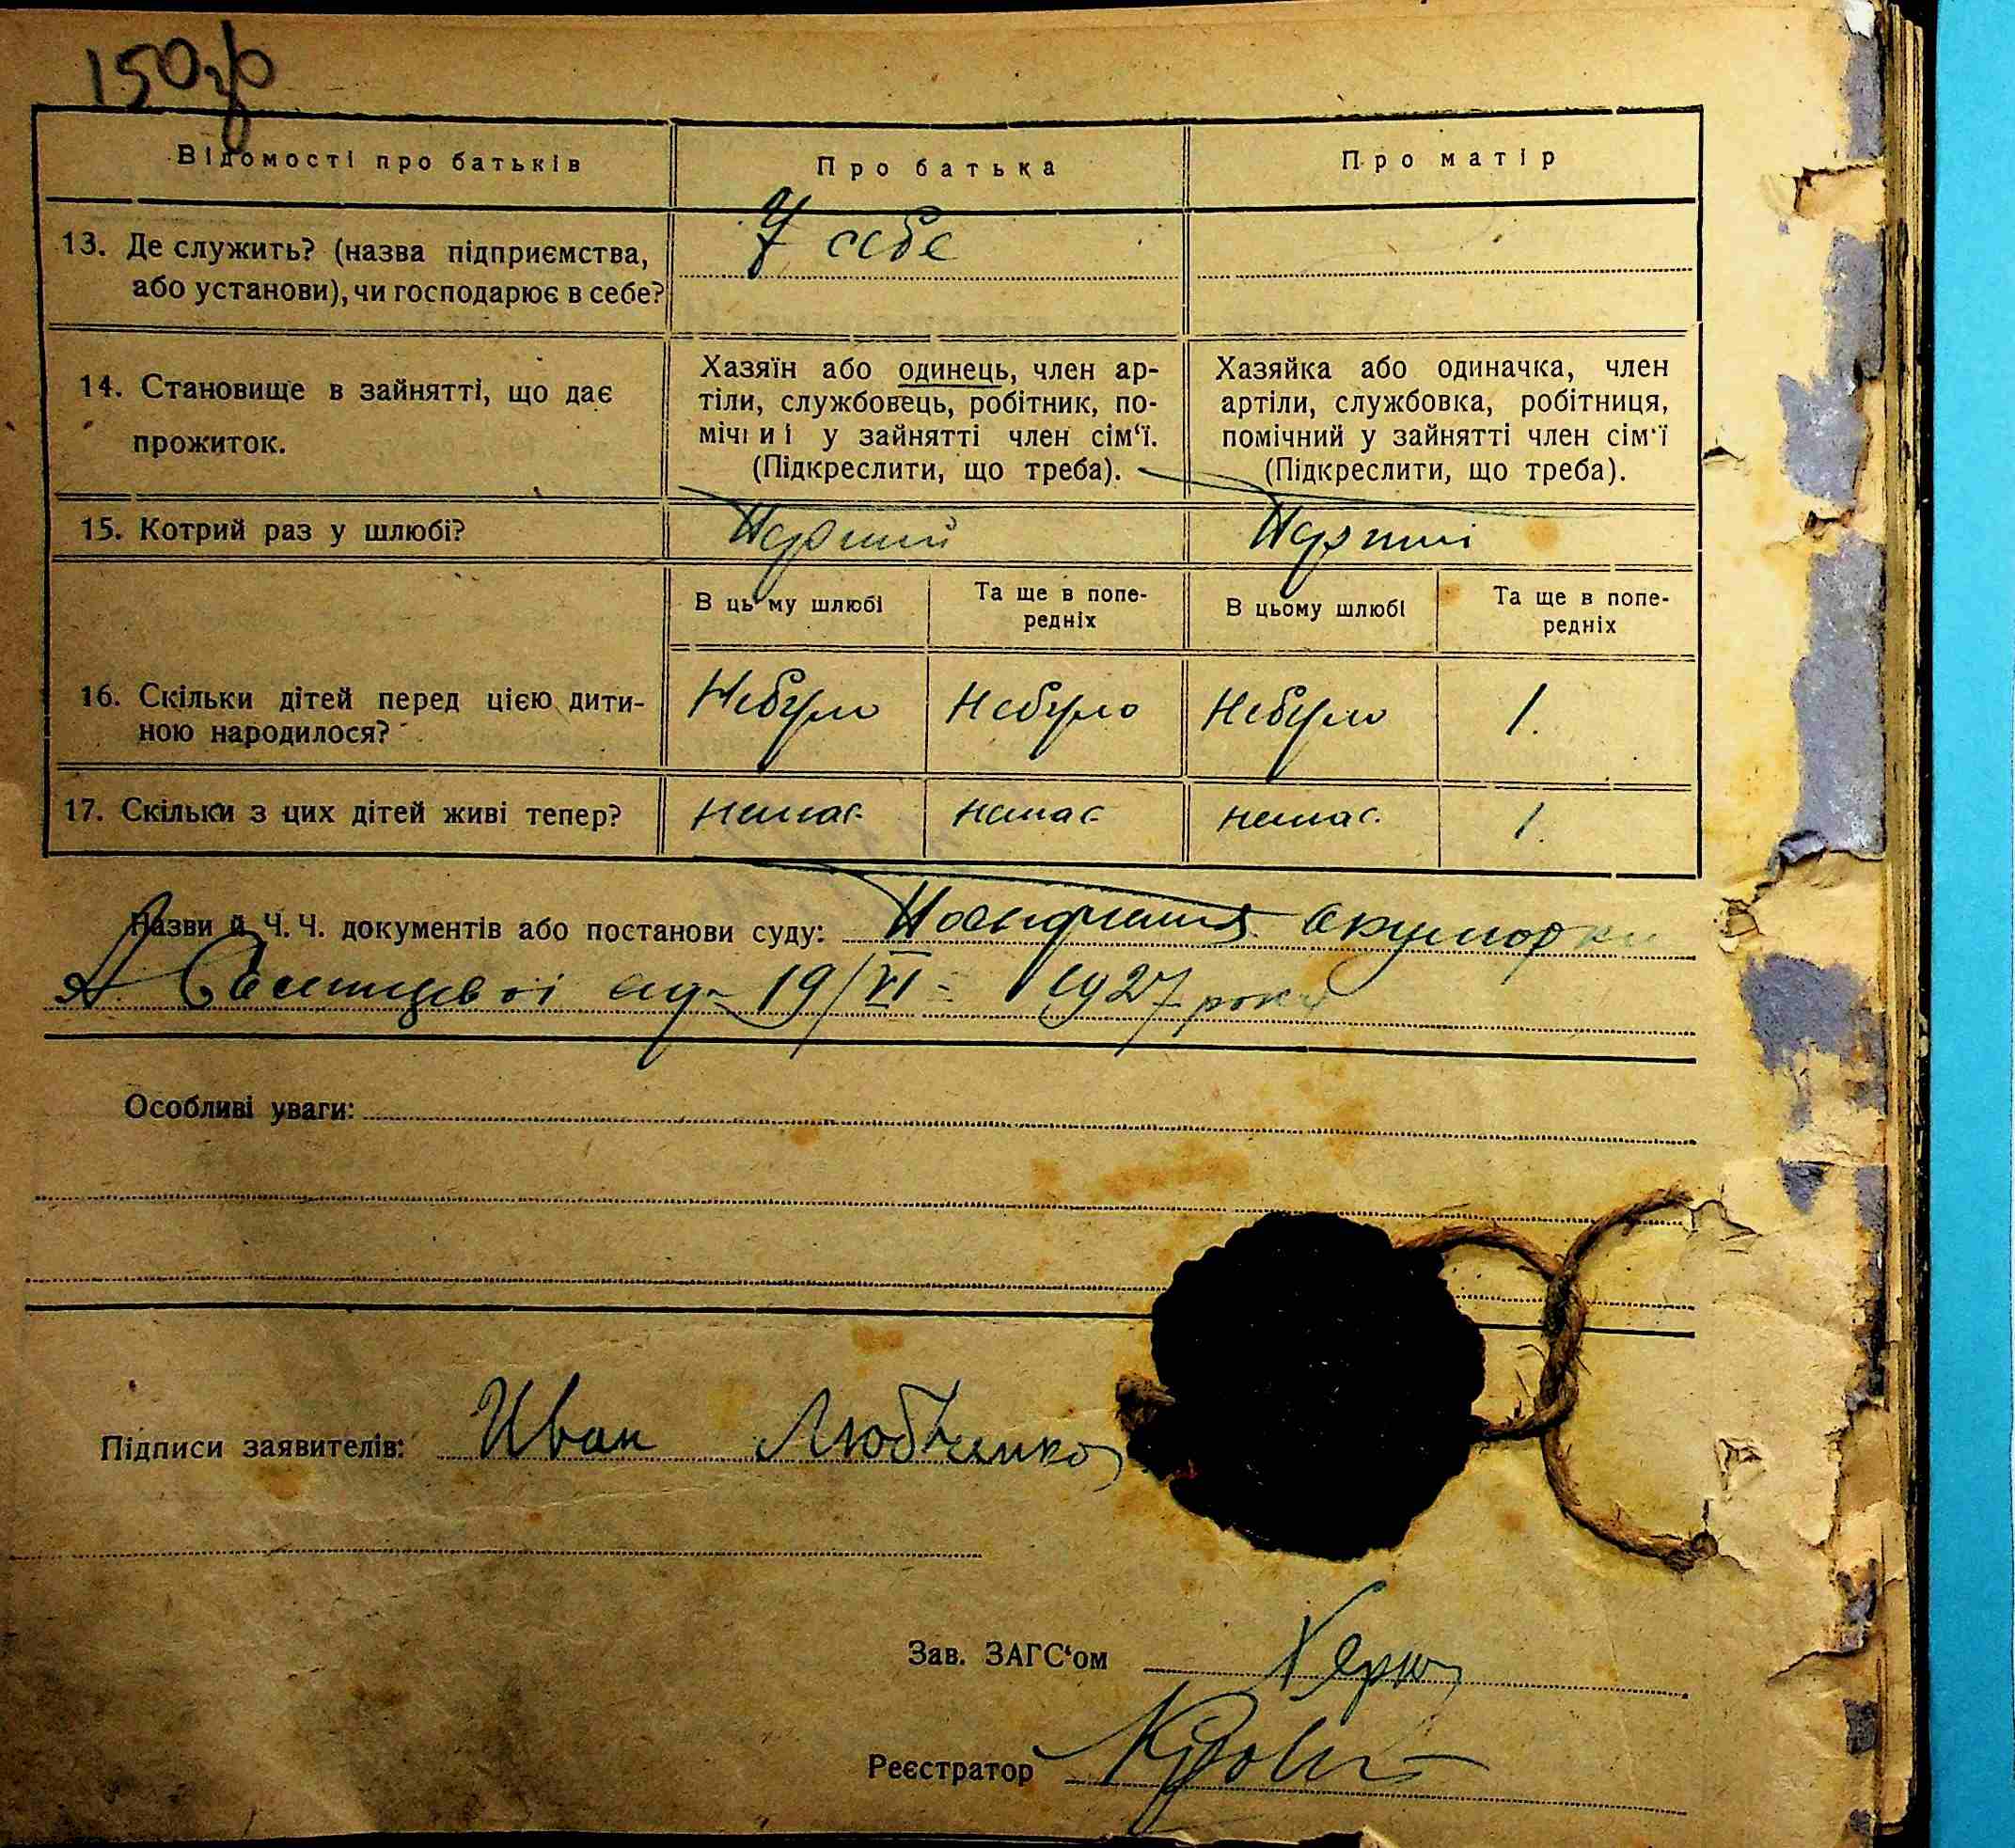 150зв
Відомості про батьків
Про батька
Про матір
13. Де служить? (назва підприємства,
або установи), чи господарює в себе?
У себе
14. Становище в зайнятті, що дає
прожиток.
Хазяїн або одинець, член ар-
тіли, службовець, робітник, по-
мічниі у зайнятті член сім‘ї.
(Підкреслити, що треба).
Хазяйка або одиначка, член
артіли, службовка, робітниця,
помічний у зайнятті член сім‘ї
(Підкреслити, що треба).
15. Котрий раз у шлюбі?
Перший
Перший
В цьому шлюбі
Та ще в попе-
редніх
В цьому шлюбі
Та ще в попе-
редніх
16. Скільки дітей перед цією дити-
ною народилося?
Небуло
Небуло
Небуло
1.
17. Скільки з цих дітей живі тепер?
немає
немає
немає.
1.
Назви й Ч. Ч. документів або постанови суду: Посвідчення акушорки
19/VI - 1927 року
Особливі уваги:
Підписи заявителів: Иван Любченко
Зав. ЗАГС‘ом
Реєстратор